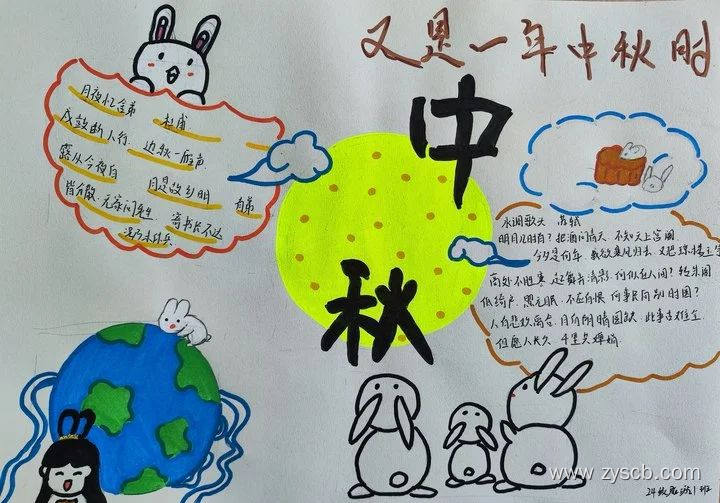 又是一年中秋时
中秋
月夜忆舍弟 杜甫
戍鼓断人行, 边秋一雁声.
露从今夜白 月是故乡明 有弟
皆分散, 无家问死生 寄书长不达
况乃未休兵
水调歌头 苏轼
明月几时有? 把酒问青天. 不知天上宫阙
今夕是何年. 我欲乘风归去. 又恐琼楼玉宇
高处不胜寒. 起舞弄清影. 何似在人间? 转朱阁
低绮户. 照无眠. 不应有恨. 何事长向别时圆?
人有悲欢离合. 月有阴晴圆缺. 此事古难全.
但愿人长久. 千里共婵娟.
24级 1班
www.zyscb.com